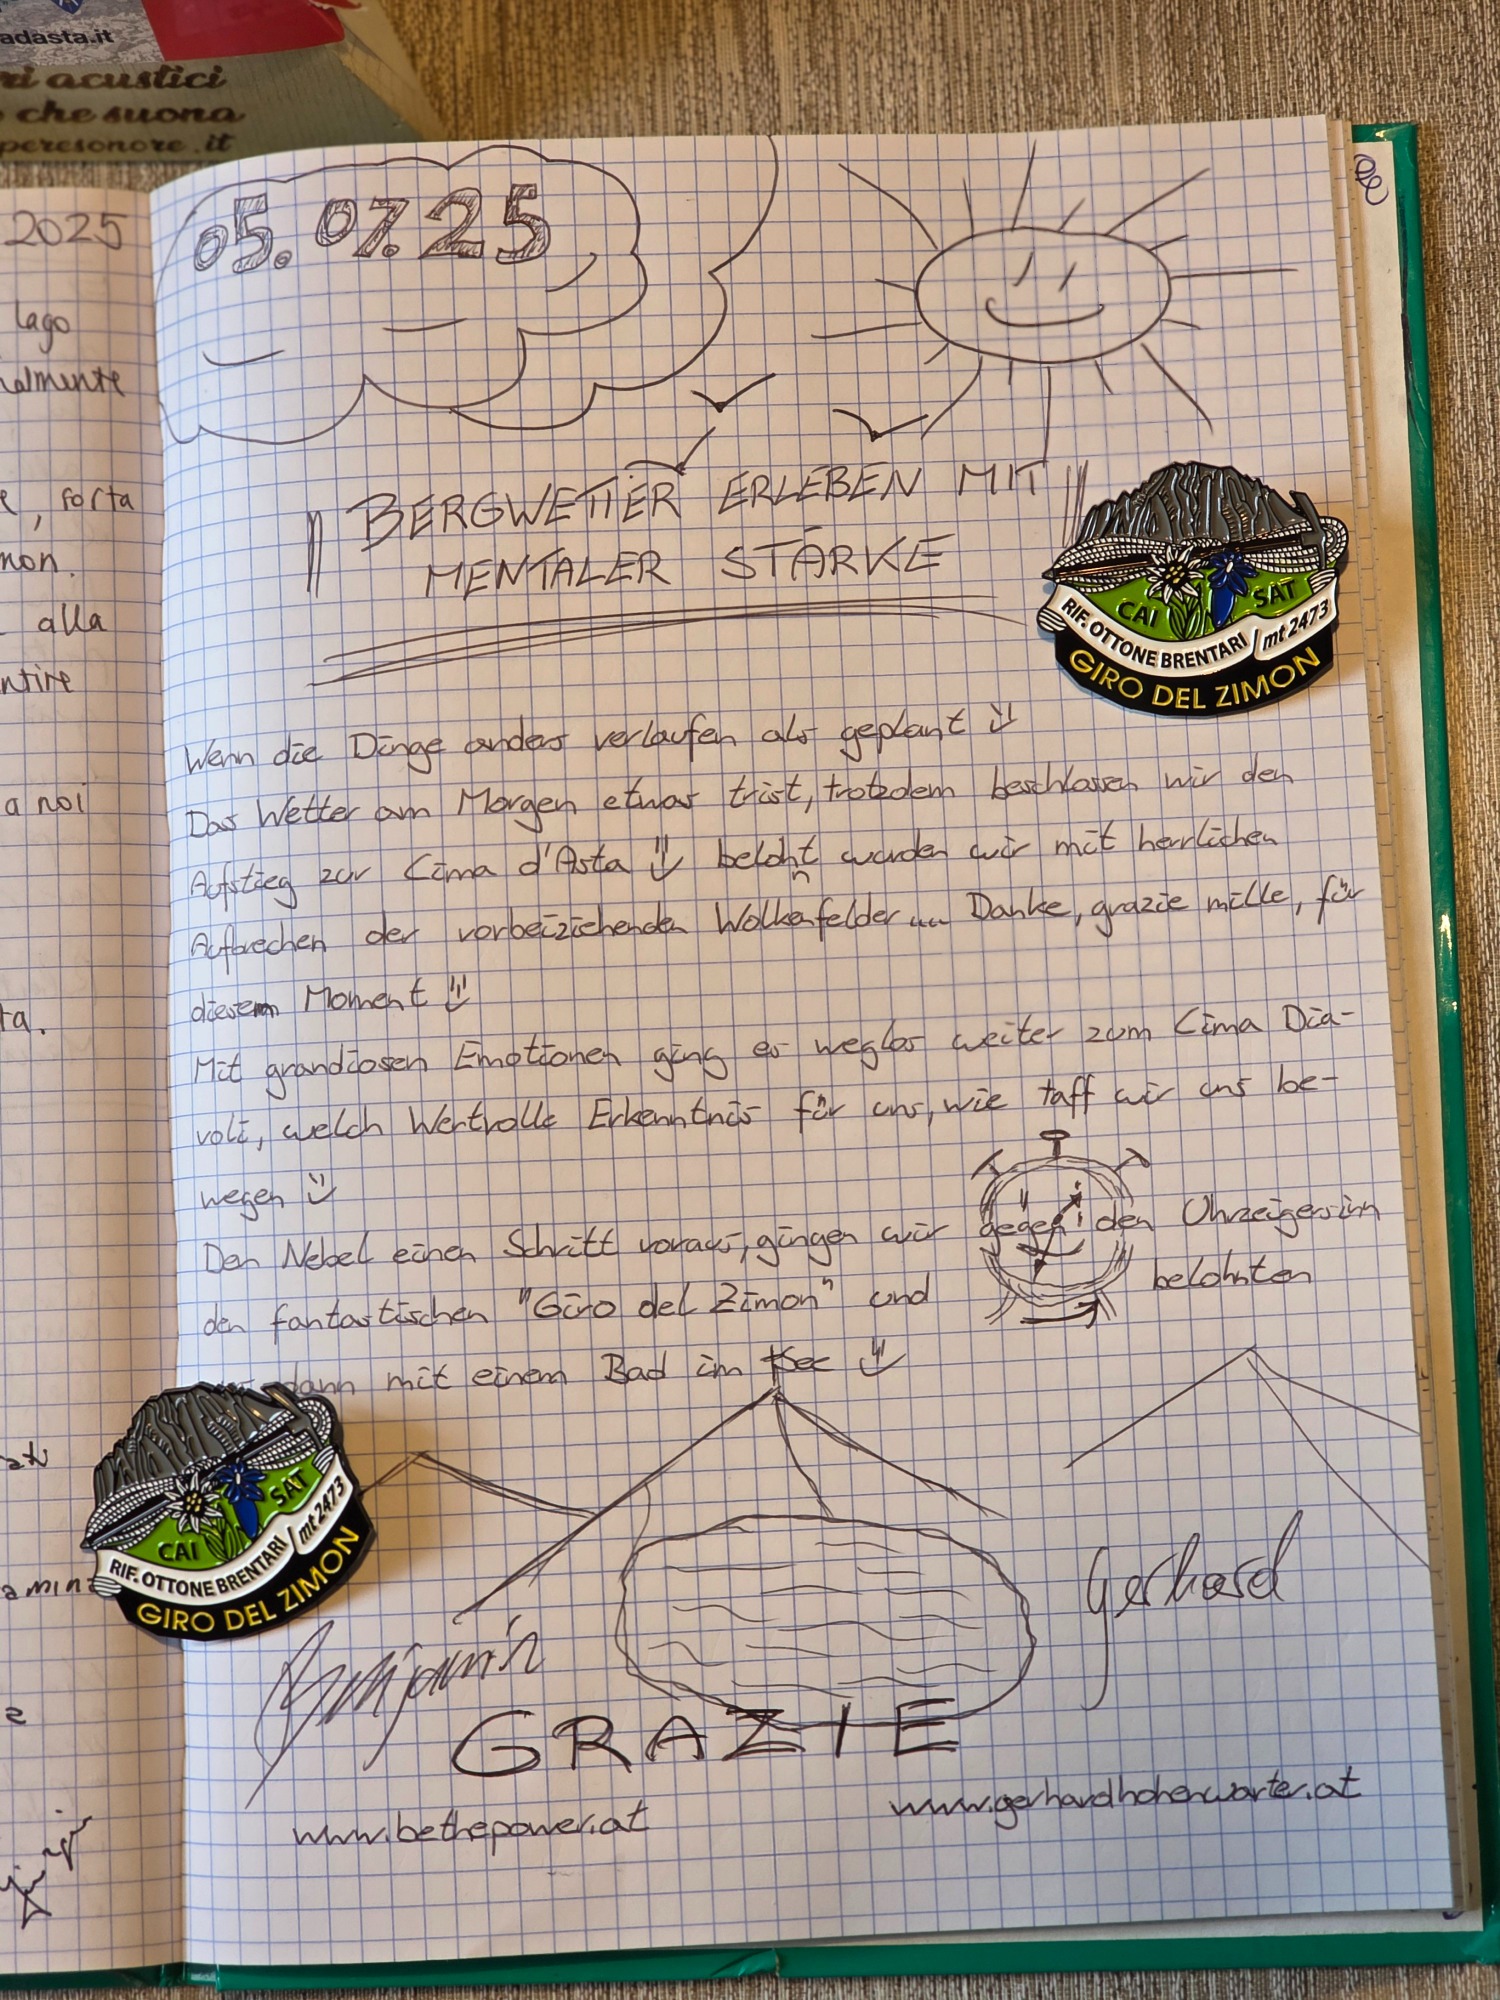 adasta.it
ri acustici
che suona
peresonore.it
2025
lago
almente
e, porta
mon.
alla
ntire
a noi
ta.
05.07.25
BERGWETTER ERLEBEN MIT
MENTALER STÄRKE
CAI SAT
RIF. OTTONE BRENTARI / mt 2473
GIRO DEL ZIMON
Wenn die Dinge anders verlaufen als geplant
Das Wetter am Morgen etwas trist, trotzdem beschlossen wir den
Aufstieg zur Cima d'Asta belohnt wurden wir mit herrlichen
Aufbrechen der vorbeiziehenden Wolkenfelder .... Danke, grazie mille, für
diesem Moment
Mit grandiosen Emotionen ging es weglos weiter zum Cima Dia-
voli, welch Wertvolle Erkenntnis für uns, wie taff wir uns be-
wegen
Den Nebel einen Schritt voraus, gingen wir "gegen" den Uhrzeigersinn
den fantastischen "Giro del Zimon" und belohnten
dann mit einem Bad im See
CAI SAT
RIF. OTTONE BRENTARI / mt 2473
GIRO DEL ZIMON
Benjamin
Gerhard
GRAZIE
www.bethepower.at
www.gerhardhohenwarter.at